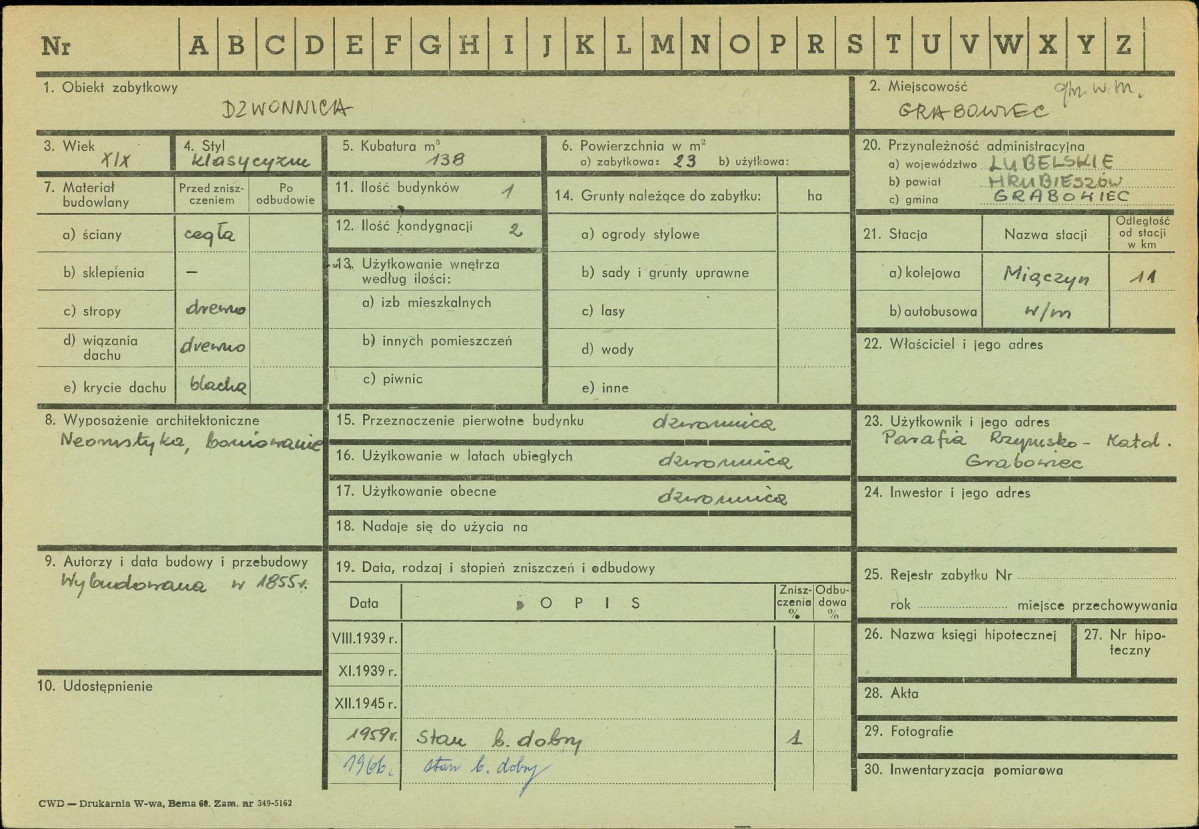 Nr A B C D E F G H I J K L M N O P R S T U V W X Y Z
1. Obiekt zabytkowy
DZWONNICA
2. Miejscowość gm. w. m.
GRABOWIEC
3. Wiek
XIX
4. Styl
klasycyzm
5. Kubatura m³
138
6. Powierzchnia w m²
a) zabytkowa: 23 b) użytkowa:
20. Przynależność administracyjna
a) województwo LUBELSKIE
b) powiat HRUBIESZÓW
c) gmina GRABOWIEC
7. Materiał budowlany
Przed znisz-
czeniem
Po
odbudowie
a) ściany cegła
b) sklepienia –
c) stropy drewno
d) wiązania
dachu drewno
e) krycie dachu blacha
11. Ilość budynków 1
12. Ilość kondygnacji 2
13. Użytkowanie wnętrza
według ilości:
a) izb mieszkalnych
b) innych pomieszczeń
c) piwnic
14. Grunty należące do zabytku: ha
a) ogrody stylowe
b) sady i grunty uprawne
c) lasy
d) wody
e) inne
21. Stacja Nazwa stacji
Odległość
od stacji
w km
a) kolejowa Miączyn 11
b) autobusowa w/m
22. Właściciel i jego adres
8. Wyposażenie architektoniczne
boniowanie
15. Przeznaczenie pierwotne budynku dzwonnica
16. Użytkowanie w latach ubiegłych dzwonnica
17. Użytkowanie obecne dzwonnica
18. Nadaje się do użycia na
23. Użytkownik i jego adres
Parafia Rzymsko-Katol.
Grabowiec
24. Inwestor i jego adres
9. Autorzy i data budowy i przebudowy
Wybudowana w 1855r.
10. Udostępnienie
19. Data, rodzaj i stopień zniszczeń i odbudowy
Data OPIS
Znisz-
czenia
%
Odbu-
dowa
%
VIII.1939 r.
XI.1939 r.
XII.1945 r.
1959r. Stan b. dobry 1
1966. stan b. dobry
25. Rejestr zabytku Nr
rok miejsce przechowywania
26. Nazwa księgi hipotecznej
27. Nr hipo-
teczny
28. Akta
29. Fotografie
30. Inwentaryzacja pomiarowa
CWD — Drukarnia W-wa, Bema 68. Zam. nr 349-5162